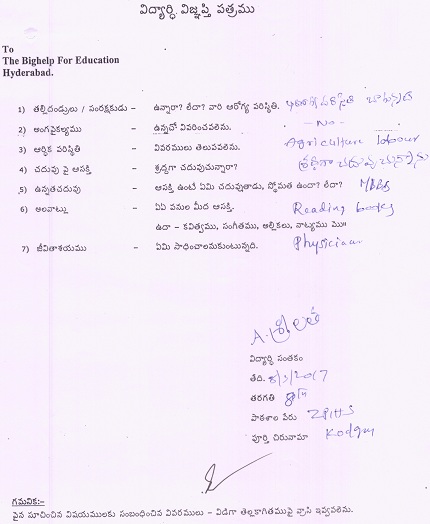 విద్యార్థి విజ్ఞప్తి పత్రము
To
The Bighelp For Education
Hyderabad.
1) తల్లిదండ్రులు / సంరక్షకుడు - ఉన్నారా? లేదా? వారి ఆరోగ్య పరిస్థితి.
2) అంగవైకల్యము - ఉన్నచో వివరించవలెను. - No -
3) ఆర్థిక పరిస్థితి - వివరములు తెలుపవలెను. Agriculture labour
4) చదువు పై ఆసక్తి - శ్రద్ధగా చదువుచున్నారా? శ్రద్ధగా
5) ఉన్నతచదువు - ఆసక్తి ఉంటే ఏమి చదువుతాడు, స్థోమత ఉందా? లేదా? MBBS
6) అలవాట్లు - ఏఏ పనుల మీద ఆసక్తి. Reading books
ఉదా - కవిత్వము, సంగీతము, అల్లికలు, నాట్యము మొ॥
7) జీవితాశయము - ఏమి సాధించాలనుకుంటున్నది. Physician
A. శ్రీలత
విద్యార్థి సంతకం
తేది. 8/3/2017
తరగతి 8th
పాఠశాల పేరు ZPHS
పూర్తి చిరునామా
గమనిక:-
పైన సూచించిన విషయములకు సంబంధించిన వివరములు - విడిగా తెల్లకాగితముపై వ్రాసి ఇవ్వవలెను.